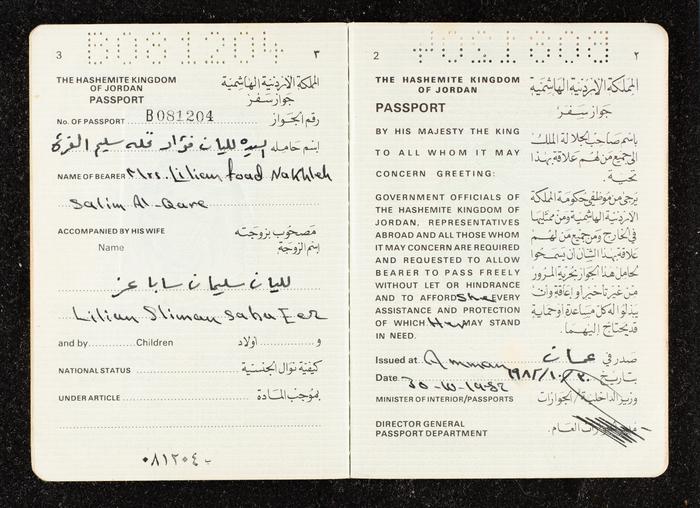 3
B081204
٣
THE HASHEMITE KINGDOM
OF JORDAN
PASSPORT
المملكة الأردنية الهاشمية
جواز سفر
No. OF PASSPORT B081204 رقم الجواز
إسم حامله السيدة لليان فؤاد نخله سليم القرة
NAME OF BEARER Mrs. Lilian foad Nakhleh
Salim Al-Qare
ACCOMPANIED BY HIS WIFE مصحوب بزوجته
Name إسم الزوجة
لليان سليمان سابا عز
Lilian Sliman saba Ezz
and by Children أولاد و
NATIONAL STATUS كيفية نوال الجنسية
UNDER ARTICLE بموجب المادة
ب ٠٨١٢٠٤
2
٢
THE HASHEMITE KINGDOM
OF JORDAN
PASSPORT
المملكة الأردنية الهاشمية
جواز سفر
BY HIS MAJESTY THE KING
TO ALL WHOM IT MAY
CONCERN GREETING:
باسم صاحب الجلالة الملك
الى جميع من لهم علاقة بهذا
تحية.
GOVERNMENT OFFICIALS OF
THE HASHEMITE KINGDOM OF
JORDAN, REPRESENTATIVES
ABROAD AND ALL THOSE WHOM
IT MAY CONCERN ARE REQUIRED
AND REQUESTED TO ALLOW
BEARER TO PASS FREELY
WITHOUT LET OR HINDRANCE
AND TO AFFORD She EVERY
ASSISTANCE AND PROTECTION
OF WHICH Her MAY STAND
IN NEED.
يرجى من موظفي حكومة المملكة
الأردنية الهاشمية ومن ممثليها
في الخارج ومن جميع من لهم
علاقة بهذا الشأن أن يسمحوا
لحامل هذا الجواز بحرية المرور
من غير تأخير أو إعاقة وأن
يبذلوا له كل مساعدة أو حماية
قد يحتاج إليهما.
Issued at Amman صدر في عمان
Date 30-10-1982 بتاريخ ٣٠/١٠/١٩٨٢
MINISTER OF INTERIOR/PASSPORTS وزير الداخلية/الجوازات
DIRECTOR GENERAL
PASSPORT DEPARTMENT
مدير الجوازات العام.